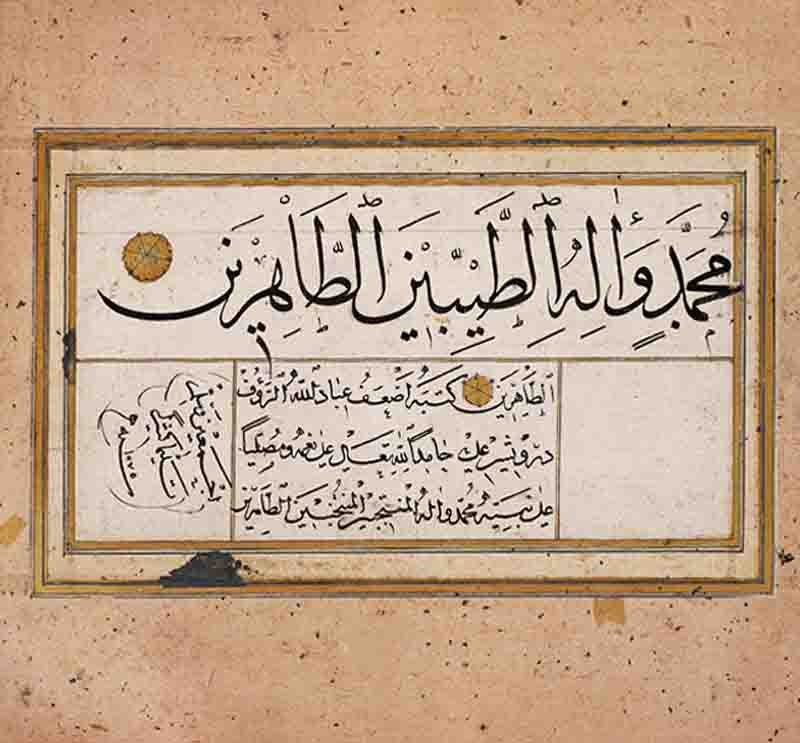 مُحَمَّدٍ وَأٰلِهِ الطَّيِّبِينَ الطَّاهِرِينَ
الطَّاهِرِينَ كتبهُ اَضْعَفُ عِبَادِ اللهِ الرَّؤُف
درويش علي حامدًا لله تعالى على نعمه ومصلياً
على نبيه محمد واله المنتجبين الطاهرين